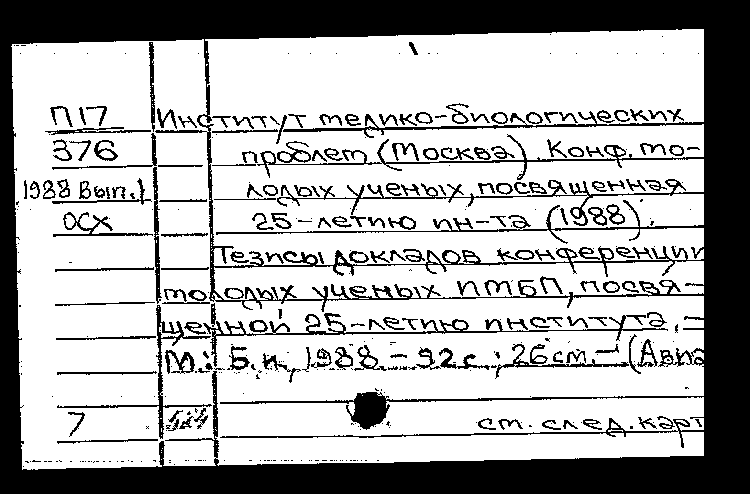 П17 Институт медико-биологических
376 проблем (Москва). Конф. мо-
1988 Вып.1 лодых ученых, посвященная
ОСХ 25-летию ин-та (1988).
Тезисы докладов конференции
молодых ученых ИМБП, посвя-
щенной 25-летию института. —
М.: Б.и., 1988. - 92с.; 26см. — (Авиа
7 ст. след. карт